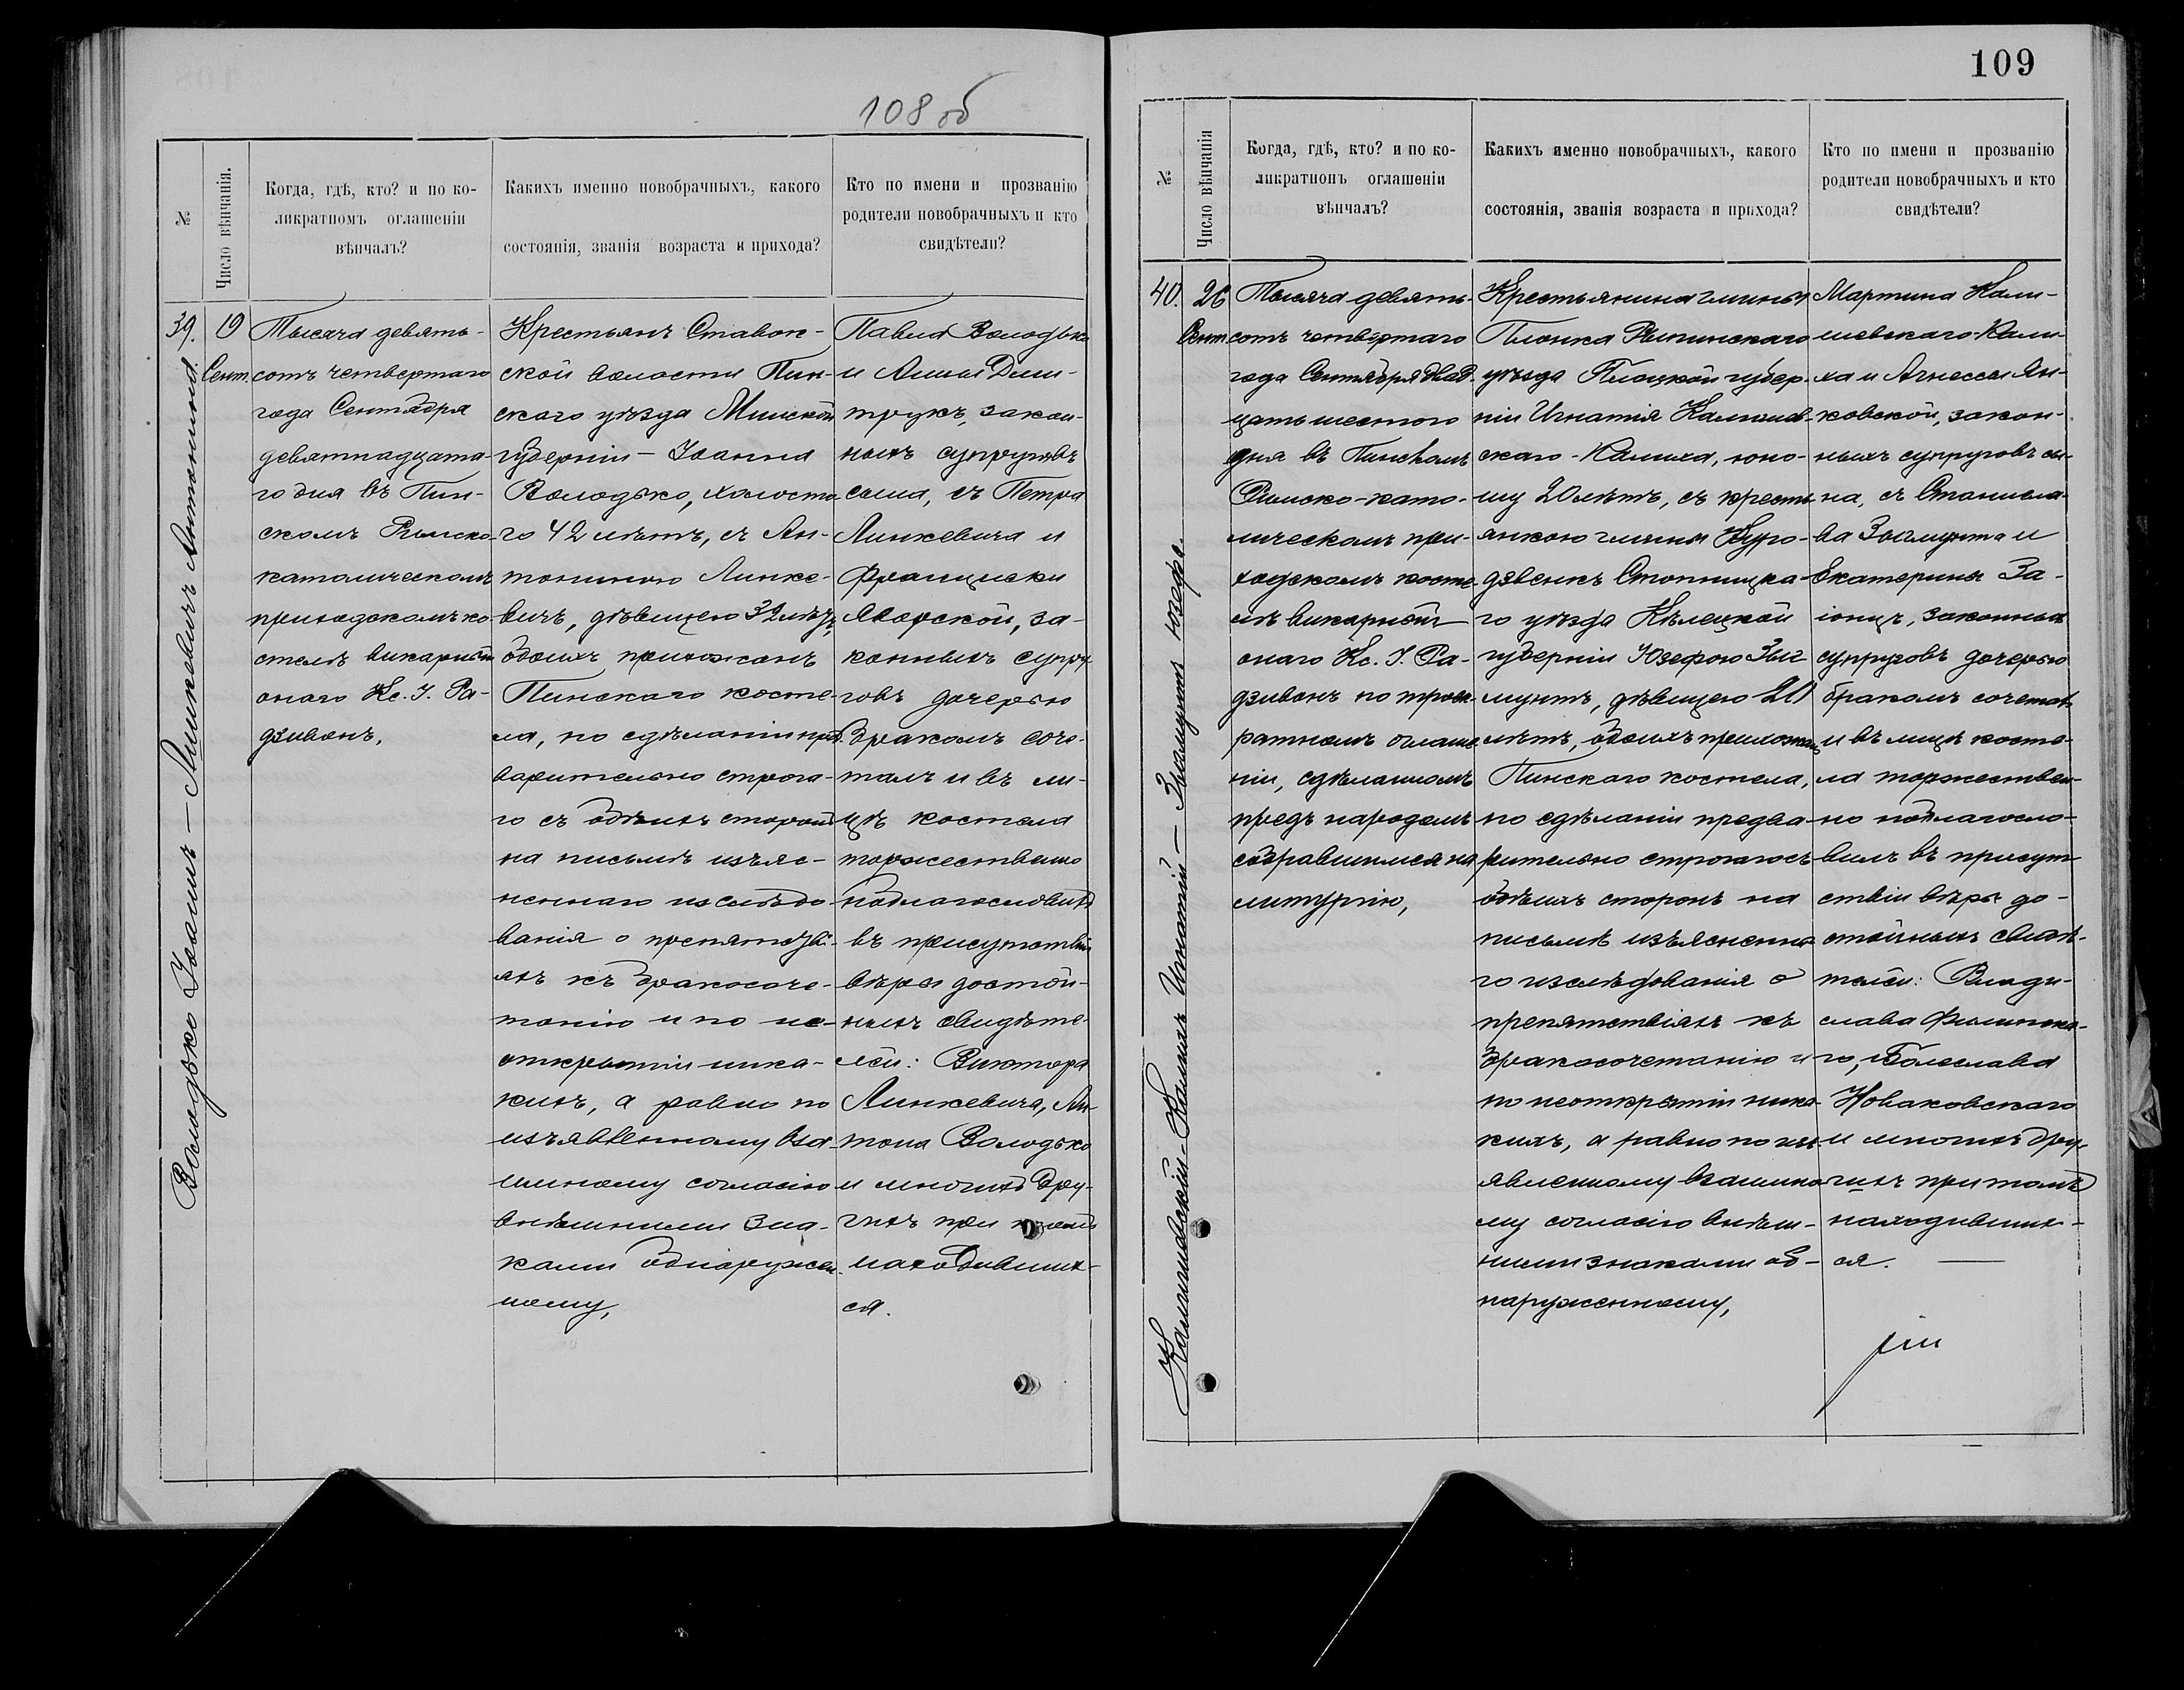 108 об
№
Число вѣнчанія.
Когда, гдѣ, кто? и по ко-
ликратномъ оглашеніи
вѣнчалъ?
Какихъ именно новобрачныхъ, какого
состоянія, званія возраста и прихода?
Кто по имени и прозванію
родители новобрачныхъ и кто
свидѣтели?
Володько Іоаннъ — Линкевичъ Антонина
39.
19
Сент.
Тысяча девять-
сотъ четвертаго
года Сентября
девятнадцата-
го дня въ Пин-
скомъ Римско-
католическомъ
приходскомъ ко-
стелѣ викарный
онаго Кс. І. Ра-
дзивонъ,
Крестьянъ Ставок-
ской волости Пин-
скаго уѣзда Минской
губерніи — Іоанна
Володько, холосто-
го 42 лѣтъ, съ Ан-
тониною Линке-
вичъ, дѣвицею 32 лѣтъ,
обоихъ прихожанъ
Пинскаго косте-
ла, по сдѣланіи пред-
варительно строга-
го съ обѣихъ сторонъ
на письмѣ изъяс-
неннаго изслѣдо-
ванія о препятстві-
яхъ къ бракосоче-
танію и по не-
открытіи ника-
кихъ, а равно по
изъявленному вза-
имному согласію
внѣшними зна-
ками обнаружен-
ному,
Павла Володько
и Анны Дми-
трукъ, закон-
ныхъ супруговъ
сына, съ Петра
Линкевича и
Франциски
Яворской, за-
конныхъ супру-
говъ дочерью
бракомъ соче-
талъ и въ ли-
цѣ костела
торжественно
поблагословилъ
въ присутствіи
вѣры достой-
ныхъ свидѣте-
лей: Виктора
Линкевича, Ан-
тона Володько
и многихъ дру-
гихъ при томъ
находивших-
ся.
109
№
Число вѣнчанія
Когда, гдѣ, кто? и по ко-
ликратномъ оглашеніи
вѣнчалъ?
Какихъ именно новобрачныхъ, какого
состоянія, званія возраста и прихода?
Кто по имени и прозванію
родители новобрачныхъ и кто
свидѣтели?
Калишевскій-Калиха Игнатій — Зыгмунтъ Юзефа.
40.
26
Сент.
Тысяча девять-
сотъ четвертаго
года Сентября двад-
цать шестого
дня въ Пинскомъ
Римско-като-
лическомъ при-
ходскомъ косте-
лѣ викарный
онаго Кс. І. Ра-
дзивонъ по троек-
ратномъ оглаше-
ніи, сдѣланномъ
предъ народомъ
собравшимся на
литургію,
Крестьянина гмины
Плонка Рыпинскаго
уѣзда Плоцкой губер-
ніи Игнатія Калишев-
скаго-Калиха, юно-
шу 20 лѣтъ, съ кресть-
янкою гмины Дуро-
двенкъ Стопницка-
го уѣзда Кѣлецкой
губерніи Юзефою Зыг
мунтъ, дѣвицею 20
лѣтъ, обоихъ прихожанъ
Пинскаго костела,
по сдѣланіи предва-
рительно строгаго съ
обѣихъ сторонъ на
письмѣ изъясненна-
го изслѣдованія о
препятствіяхъ къ
бракосочетанію и
по неоткрытіи ника-
кихъ, а равно по изъ-
явленному взаимно-
му согласію внѣш-
ними знаками об-
наруженному,
Мартина Кали-
шевскаго-Кали-
ха и Агнессы Ян-
ковской, закон-
ныхъ супруговъ сы-
на, съ Станисла-
ва Зыгмунта и
Екатерины За-
іонцъ, законныхъ
супруговъ дочерью
бракомъ сочеталъ
и въ лицѣ косте-
ла торжествен-
но поблагосло-
вилъ въ присут-
ствіи вѣры до-
стойныхъ свидѣ-
телей: Влади-
слава Филипска-
го, Болеслава
Новаковскаго
и многихъ дру-
гихъ при томъ
находивших-
ся.